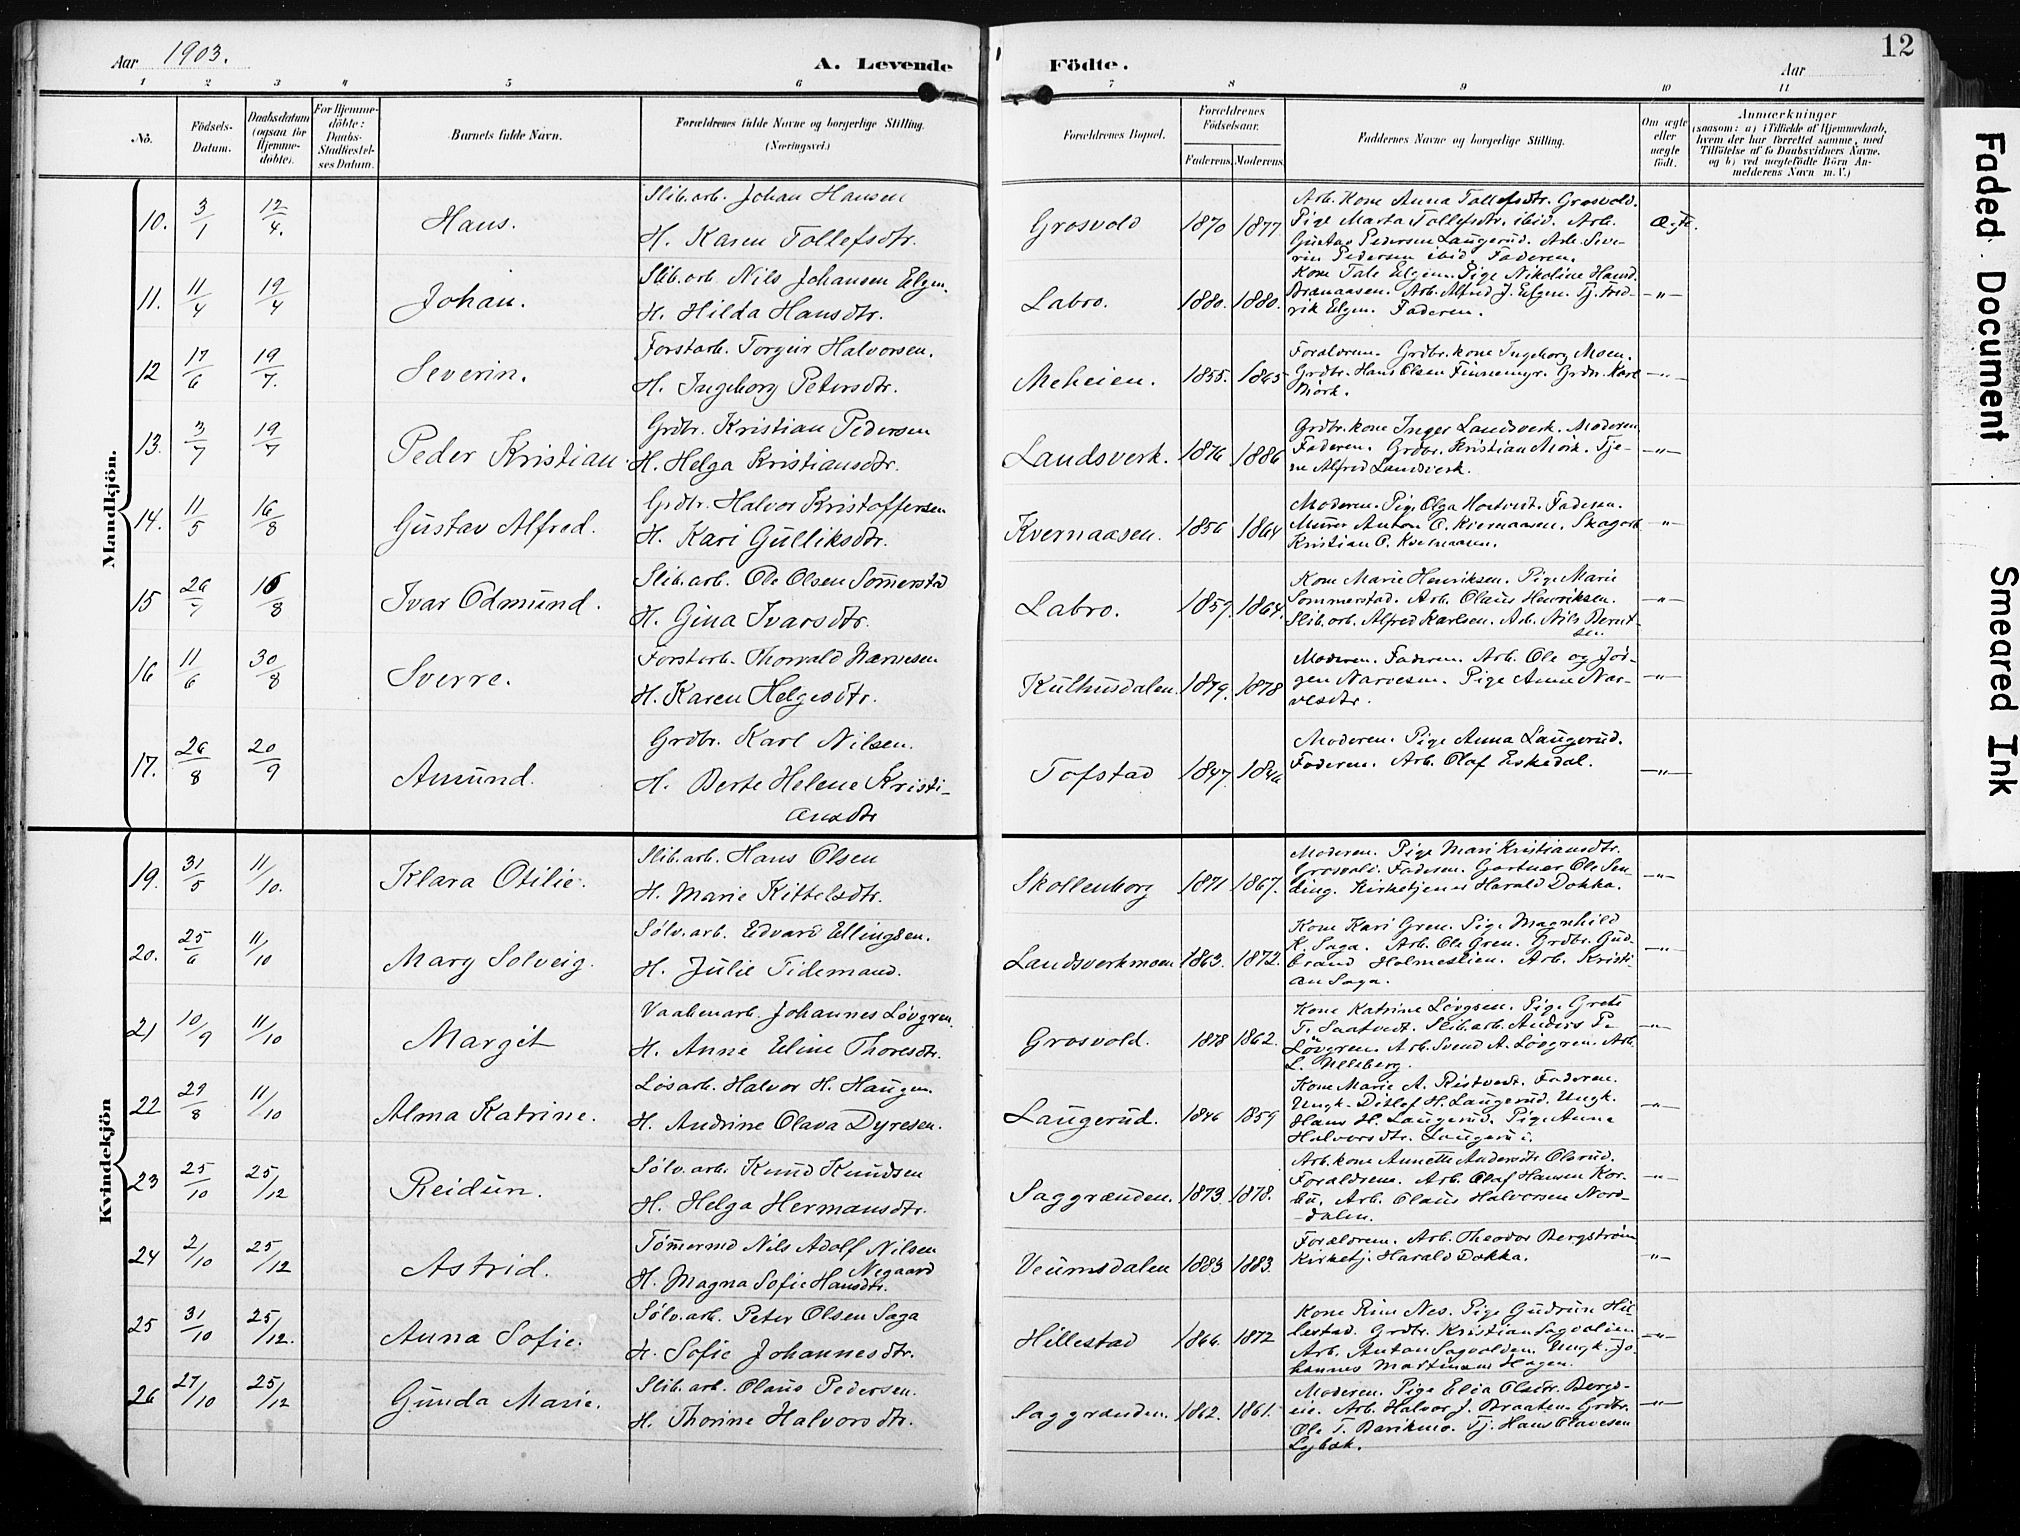 Aar 1903.
A. Levende
Födte.
Aar
12
1 2 3 4 5 6 7 8 9 10 11
No.
Födsels-Datum.
Daabsdatum (ogsaa for Hjemmedöbte).
For Hjemmedöbte: Daabs-Stadfæstelses Datum.
Barnets fulde Navn.
Forældrenes fulde Navne og borgerlige Stilling.
(Næringsvei.)
Forældrenes Bopæl.
Forældrenes Födselsaar.
Faderens. Moderens.
Faddernes Navne og borgerlige Stilling.
Om ægte eller uægte födt.
Anmærkninger
(saasom: a) i Tilfælde af Hjemmedaab, hvem der har forrettet samme, med Tilföielse af to Daabsvidners Navne, og b) ved uægtefödte Börn Anmelderens Navn m. V.)
Mandkjön.
10. 3/1 12/4. Hans. Slib.arb. Johan Hansen
H. Karen Tollefsdtr. Grosvold 1870 1877 Arb. Kone Anna Tollefsdtr. Grosvold.
Pige Marta Tollefsdtr. ibid. Arb.
Gustav Pedersen Laugerud. Arb. Seve-
rin Pedersen ibid. Faderen.
11. 11/4 19/4 Johan. Slib.arb. Nils Johansen Elgen.
H. Hilda Hansdtr. Labro. 1880. 1880. Kone Tale Elgen. Pige Nikoline Hansd.
Arb. Alfred J. Elgen. Tj. Fred-
rik Elgen. Faderen. -"-
12 17/6 19/7. Severin. Forstarb. Torgeir Halvorsen.
H. Ingeborg Petersdtr. Meheien. 1855. 1865 Forældrene. Grdbr. kone Ingeborg Moen.
Grdbr. Hans Olsen Finnemyr. Grdn. Karl
Mörk. -"-
13. 3/7 19/7 Peder Kristian. Grdbr. Kristian Pedersen
H. Helga Kristiansdtr. Landsverk. 1876 1886 Grdbr. kone Inger Landsverk. Moderen
Faderen. Grdbr. Kristian Mörk. Tje-
ne Alfred Landsverk. -"-
14. 11/5 16/8 Gustav Alfred. Grdbr. Halvor Kristoffersen
H. Kari Gulliksdtr. Kvernaasen. 1856 1864 Moderen. Pige Olga Hostvedt. Faderen.
Murer Anton O. Kvernaasen. Skogarb
Kristian O. Kvernaasen. -"-
15 26/7 16/8 Ivar Odmund. Slib.arb. Ole Olsen Sommerstad
H. Gina Ivarsdtr. Labro. 1859. 1864. Kone Marie Henriksen. Pige Marie
Sommerstad. Arb. Olaus Henriksen.
Slib.arb. Alfred Karlsen. Arb. Nils Bernt-
sen -"-
16 11/6 30/8 Sverre. Forstarb. Thorvald Narvesen
H. Karen Helgesdtr. Kulhusdalen. 1879. 1878 Moderen. Faderen. Arb. Ole og Jör-
gen Narvesen. Pige Anne Nar-
vesdtr. -"-
17. 26/8 20/9 Amund. Grdbr. Karl Nilsen.
H. Berte Helene Kristi-
ansdtr Tofstad 1847. 1846 Moderen. Pige Anna Laugerud.
Faderen. Arb. Olaf Eskedal. -"-
Kvindekjön
19. 31/5 11/10. Klara Otilie. Slib.arb. Hans Olsen
H. Marie Kittelsdtr. Skollenborg 1871 1867. Moderen. Pige Mari Kristiansdtr.
Grosvold. Faderen. Gartner Ole Sen-
ding. Kirketjener Harald Dokka. -"-
20. 25/6 11/10 Mary Solveig. Sølv.arb. Edvard Ellingsen.
H. Julie Tidemand. Landsverkmoen 1863. 1872. Kone Kari Gren. Pige Magnhild
K. Saga. Arb. Ole Gren. Grdbr. Gud-
brand Holmeslien. Arb. Kristi-
an Saga. -"-
21 10/9 11/10 Margit Vaabenarb. Johannes Løvgren.
H. Anne Eline Thoresdtr. Grosvold. 1878 1862. Kone Katrine Løvgsen. Pige Grete
T. Saatvedt. Slib.arb. Anders P.
Lövgren. Arb. Svend A. Lövgren. Arb.
L. Ulleberg. -"-
22 29/8 11/10 Alma Katrine. Løsarb. Halvor H. Haugen.
H. Andrine Olava Dyresen. Laugerud. 1846 1859 Kone Marie A. Ristvedt. Faderen.
Ungk. Ditlef H. Laugerud. Ungk.
Hans H. Laugerud. Pige Anne
Halvorsdtr. Laugerud. -"-
23 25/10 25/12 Reidun. Sølv.arb. Knud Knudsen
H. Helga Hermansdtr. Saggrænden. 1873. 1878. Arb. kone Annette Andersdtr Olsrud.
Forældrene. Arb. Olaf Hansen Kor-
bu. Arb. Olaus Halvorsen Nord-
dalen. -"-
24 2/10 25/12 Astrid. Tömermd Nils Adolf Nilsen
Negaard
H. Magna Sofie Hansdtr. Veumsdalen 1883 1883. Forældrene. Arb. Theodor Bergström
Kirketj. Harald Dokka. -"-
25 31/10 25/12. Anna Sofie. Sølv.arb. Peter Olsen Saga
H. Sofie Johannesdtr. Hillestad 1866. 1872 Kone Rine Nes. Pige Gudrun Hil-
lestad. Grdbr. Kristian Sagvolden
Arb. Anton Sagvolden. Ungk. Jo-
hannes Martinsen Hagen. -"-
26 27/10 25/12 Gunda Marie. Slib.arb. Olaus Pedersen.
H. Thorine Halvorsdtr. Saggrænden. 1862. 1861. Moderen. Pige Elea Olsdtr. Bergs-
eie. Arb. Halvor J. Braaten. Grdbr.
Ole T. Bevikmo. Tj. Hans Olavesen
Lybæk. -"-
Faded Document
Smeared Ink